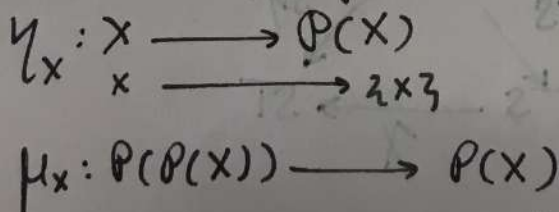 η_X : X ⟶ P(X)
x ⟶ {x}
μ_X : P(P(X)) ⟶ P(X)